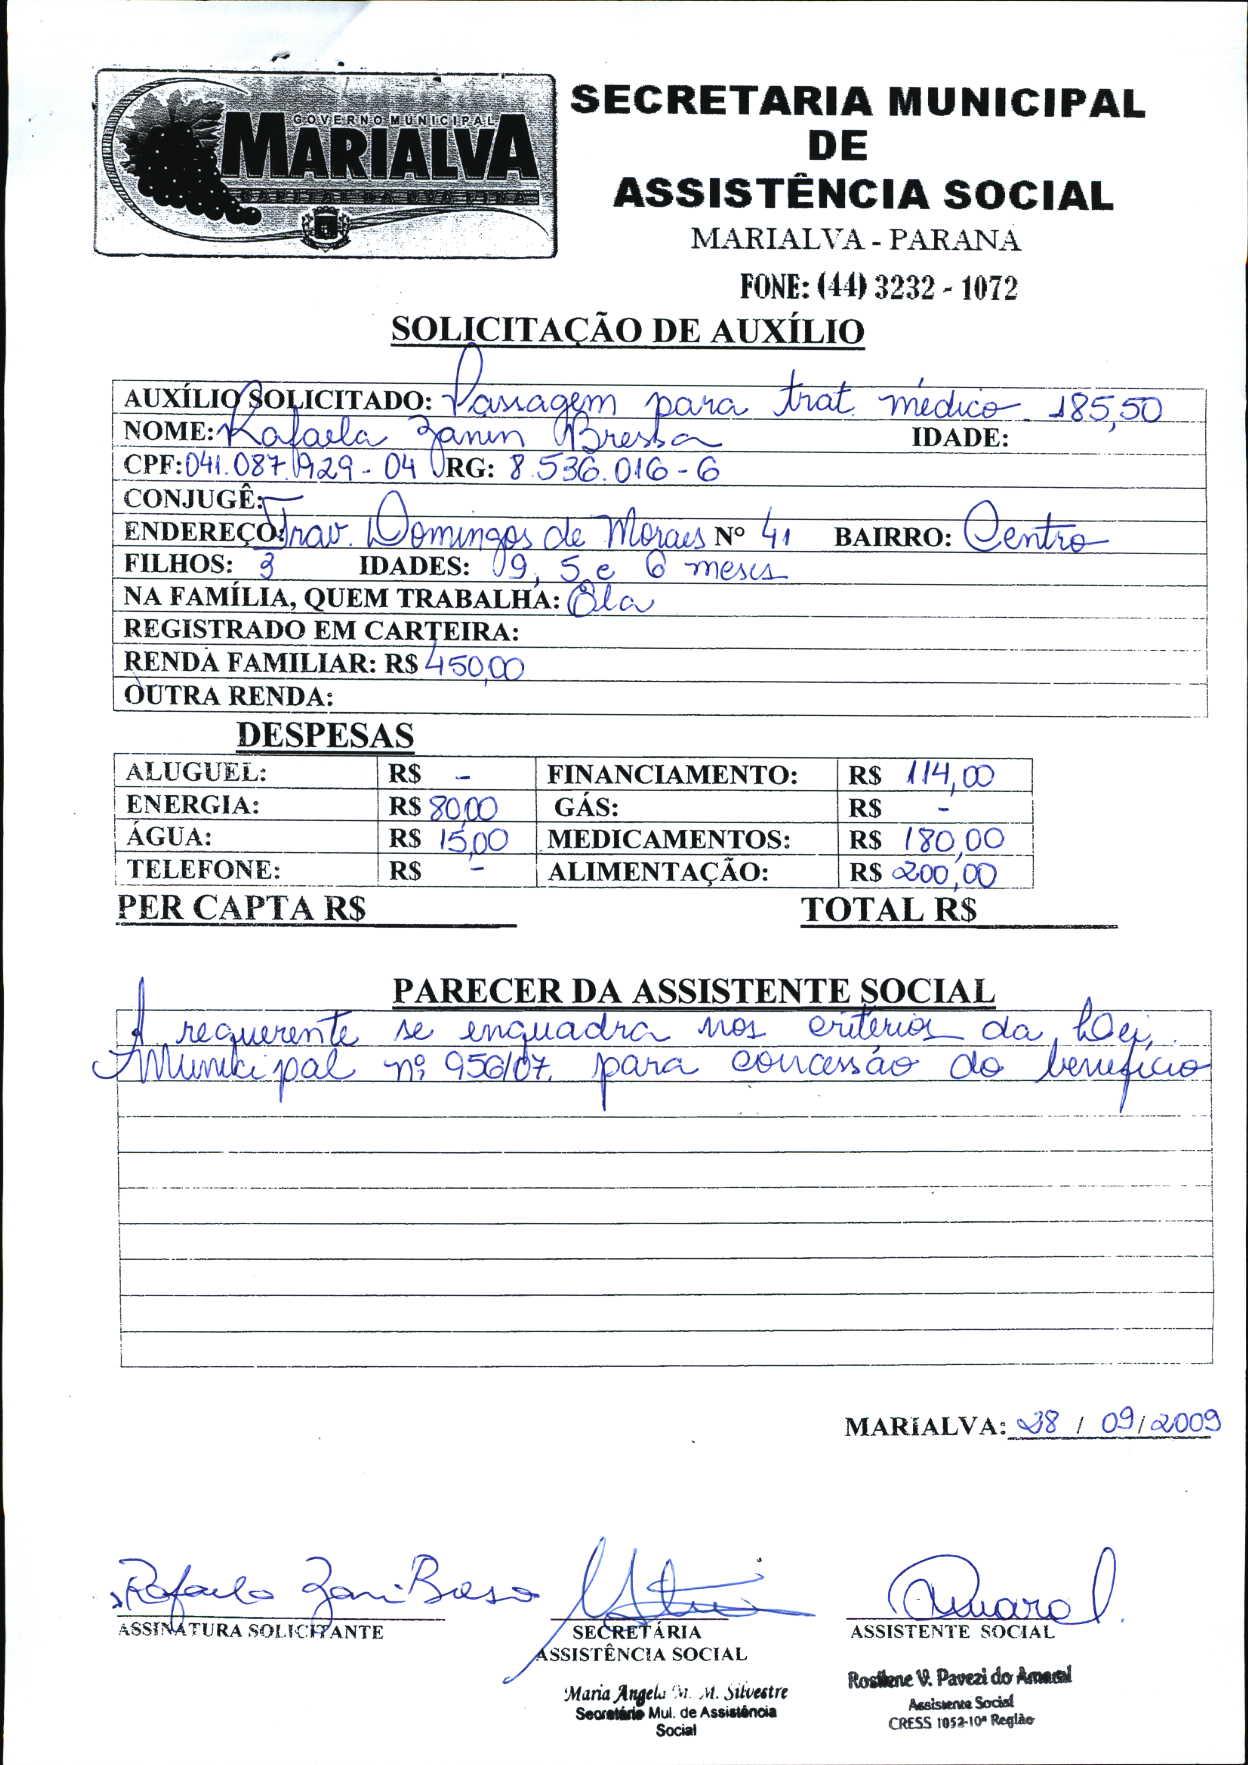 GOVERNO MUNICIPAL
MARIALVA
CAPITAL DA UVA FINA
SECRETARIA MUNICIPAL
DE
ASSISTÊNCIA SOCIAL
MARIALVA - PARANÁ
FONE: (44) 3232 - 1072
SOLICITAÇÃO DE AUXÍLIO
AUXÍLIO SOLICITADO: Passagem para trat. médico. 185,50
NOME: Rafaela Zanin Bressa IDADE:
CPF: 041.087.929-04 RG: 8.536.016-6
CONJUGÊ: —
ENDEREÇO: Trav. Domingos de Moraes Nº 41 BAIRRO: Centro
FILHOS: 3 IDADES: 9, 5 e 6 meses
NA FAMÍLIA, QUEM TRABALHA: Ela
REGISTRADO EM CARTEIRA:
RENDA FAMILIAR: R$ 450,00
OUTRA RENDA:
DESPESAS
ALUGUEL: R$ - FINANCIAMENTO: R$ 114,00
ENERGIA: R$ 80,00 GÁS: R$ -
ÁGUA: R$ 15,00 MEDICAMENTOS: R$ 180,00
TELEFONE: R$ - ALIMENTAÇÃO: R$ 200,00
PER CAPTA R$ TOTAL R$
PARECER DA ASSISTENTE SOCIAL
A requerente se enquadra nos critérios da Lei
Municipal nº 956/07. para concessão do benefício
MARIALVA: 28 / 09 / 2009
Rafaela Zani Bressa Amaral
ASSINATURA SOLICITANTE SECRETÁRIA ASSISTENTE SOCIAL
ASSISTÊNCIA SOCIAL
Maria Angela M. M. Silvestre Rosilene V. Pavezi do Amaral
Secretário Mul. de Assistência Assistente Social
Social CRESS 1052-10ª Região